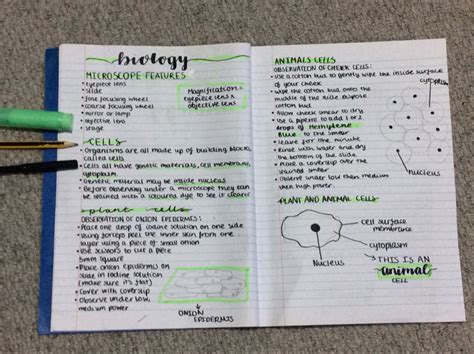 biology
MICROSCOPE FEATURES
• eyepiece lens
• slide
• fine focusing wheel
• coarse focusing wheel
• mirror or lamp
• objective lens
• stage
Magnification =
eyepiece lens x
objective lens
- CELLS
• Organisms are all made up of building blocks
called cells
• Cells all have genetic materials, cell membrane,
cytoplasm
• Genetic material may be inside nucleus
• Before observing under a microscope they can
be stained with a coloured dye to be clearer
plant cells
OBSERVATION OF ONION EPIDERMIS:
• Place one drop of iodine solution on one side
• Using forceps peel the inner skin from one
layer using a piece of small onion
• Use scissors to cut a piece
5mm square
• Place onion epidermis on
slide in iodine solution
(make sure it's flat)
• Cover with coverslip
• Observe under low,
medium power
ONION
EPIDERMIS
ANIMALS CELLS
OBSERVATION OF CHEEK CELLS:
• Use a cotton bud to gently wipe the inside surface
of your cheek
• Wipe the cotton bud onto the
middle of the slide. Dispose
cotton bud
• from cheek smear to dry
• Use a pipette to add 1 or 2
drops of Methylene
Blue to the smear
• leave for one minute
• Rinse with water and dry
the bottom of the slide
• Place a coverslip over the
stained smear
• Observe under low then medium
then high power.
cytoplasm
nucleus
PLANT AND ANIMAL CELLS:
cell surface
membrane
cytoplasm
Nucleus
THIS IS AN
animal
CELL